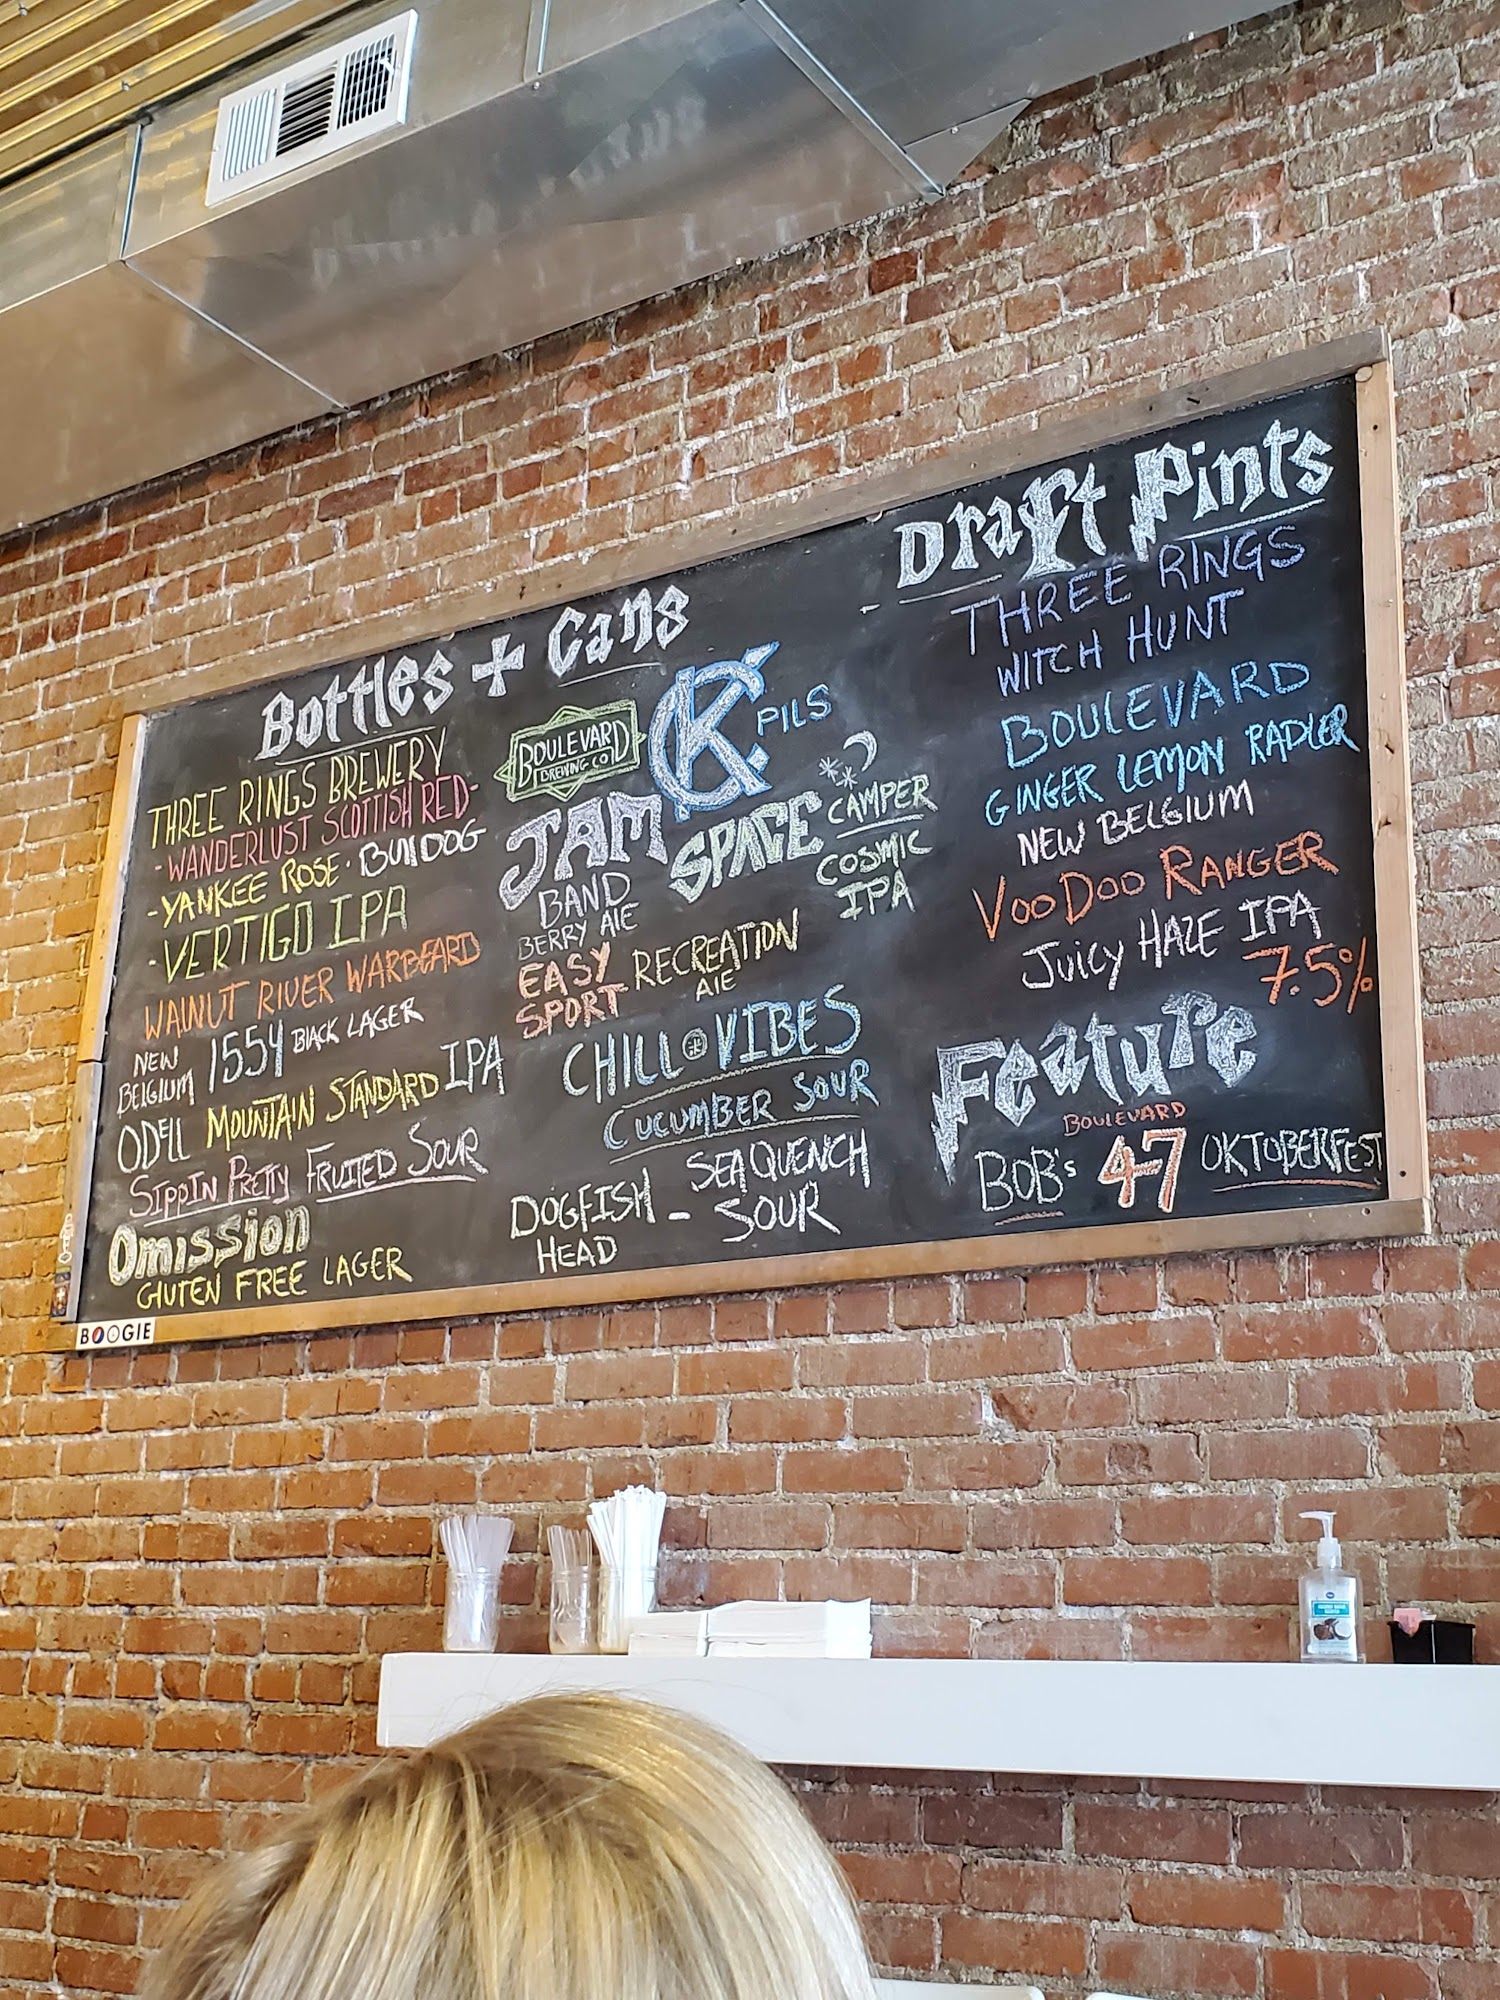 Bottles + Cans
THREE RINGS BREWERY
- WANDERLUST SCOTTISH RED -
- YANKEE ROSE · BUNDOG
- VERTIGO IPA
WALNUT RIVER WARBEARD
NEW BELGIUM 1554 BLACK LAGER
ODELL MOUNTAIN STANDARD IPA
SIPPIN PRETTY FRUITED SOUR
Omission
GLUTEN FREE LAGER
BOULEVARD
BREWING CO
KC PILS
JAM
BAND
BERRY ALE
SPACE CAMPER
COSMIC
IPA
EASY
SPORT
RECREATION
ALE
CHILL VIBES
CUCUMBER SOUR
DOGFISH
HEAD
- SEAQUENCH
SOUR
Draft Pints
THREE RINGS
WITCH HUNT
BOULEVARD
GINGER LEMON RADLER
NEW BELGIUM
VOODOO RANGER
JUICY HAZE IPA
7.5%
Feature
BOULEVARD
BOB'S 47 OKTOBERFEST
BOOGIE